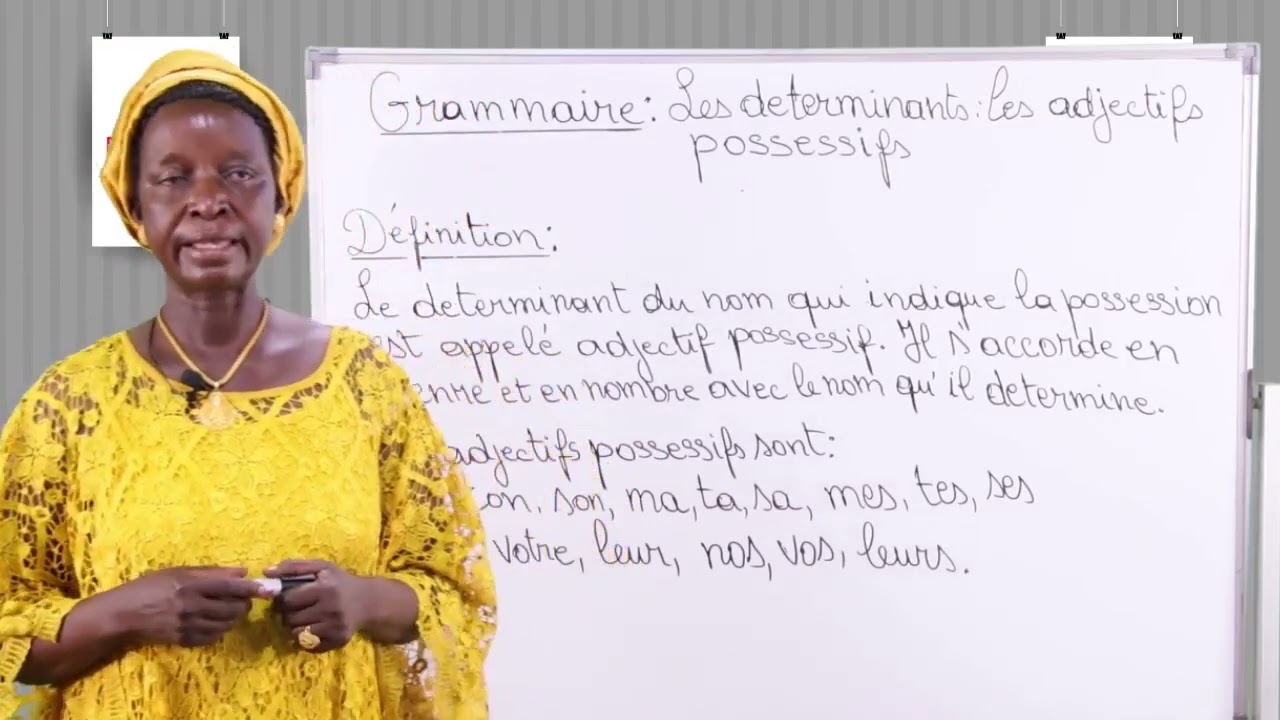 Grammaire: Les determinants: les adjectifs
possessifs
Définition:
Le determinant du nom qui indique la possession
est appelé adjectif possessif. Il s'accorde en
et en nombre avec le nom qu'il determine.
adjectifs possessifs sont:
son, ma, ta, sa, mes, tes, ses
votre, leur, nos, vos, leurs.